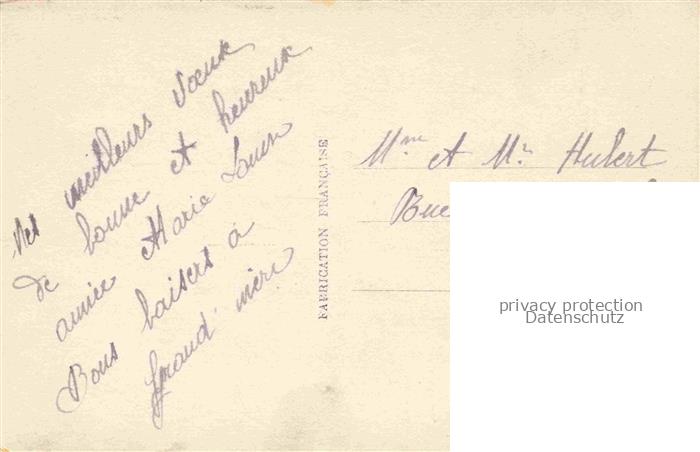 Mes meilleurs vœux
de bonne et heureuse
année Marie Louise
Bons baisers à
Grand' mère
FABRICATION FRANÇAISE
Mme et Mr Hubert
privacy protection
Datenschutz